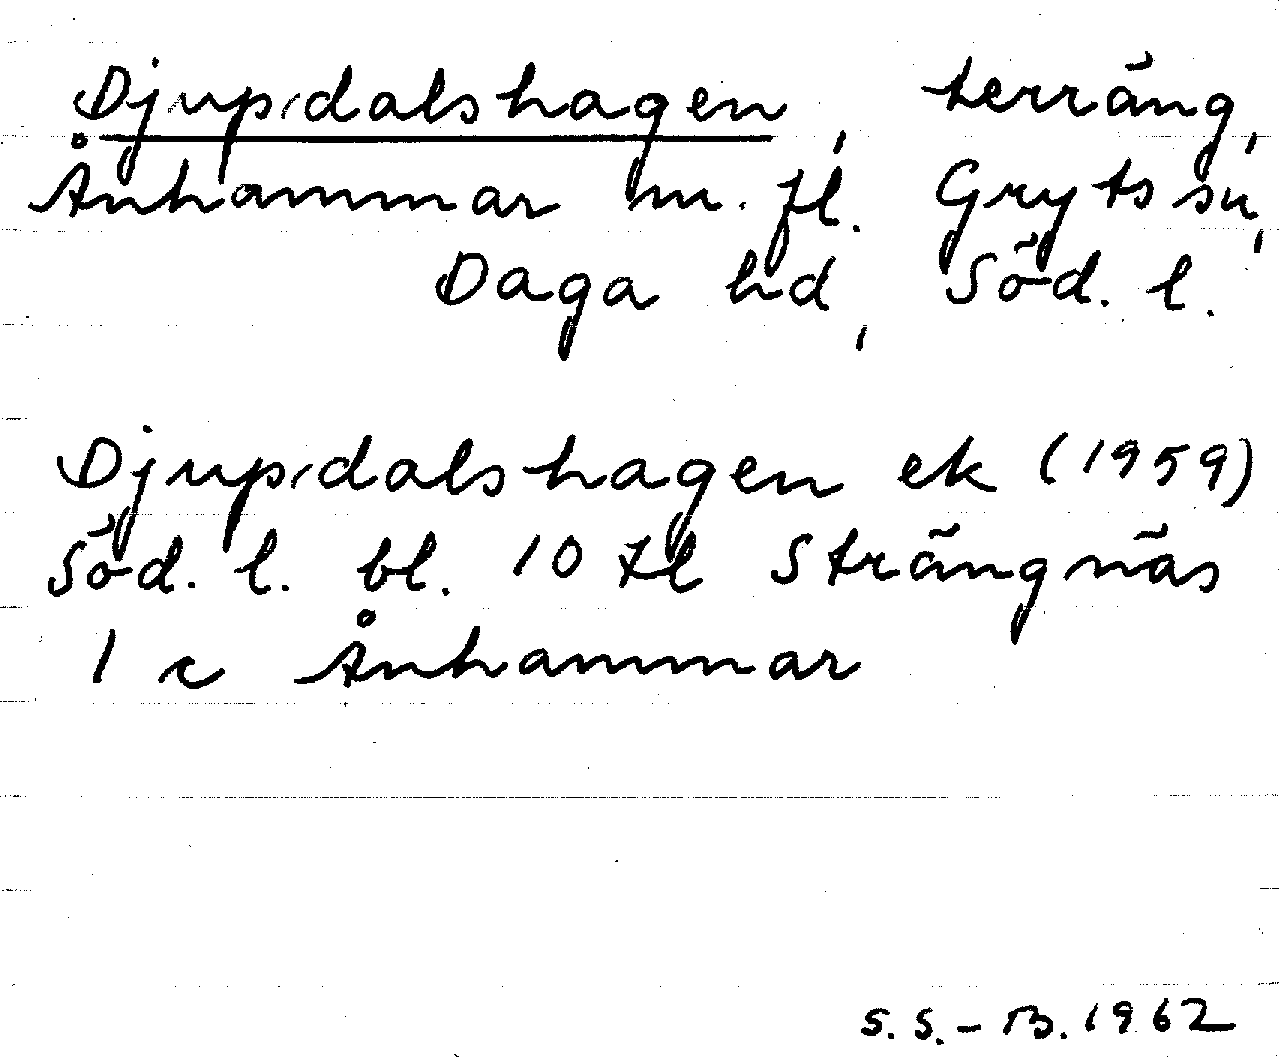 Djupdalshagen, terräng,
Ånhammar m.fl. Gryts sn,
Daga hd, Söd. l.
Djupdalshagen ek (1959)
Söd. l. bl. 10 tl Strängnäs
1 c Ånhammar
S.S.-B. 1962